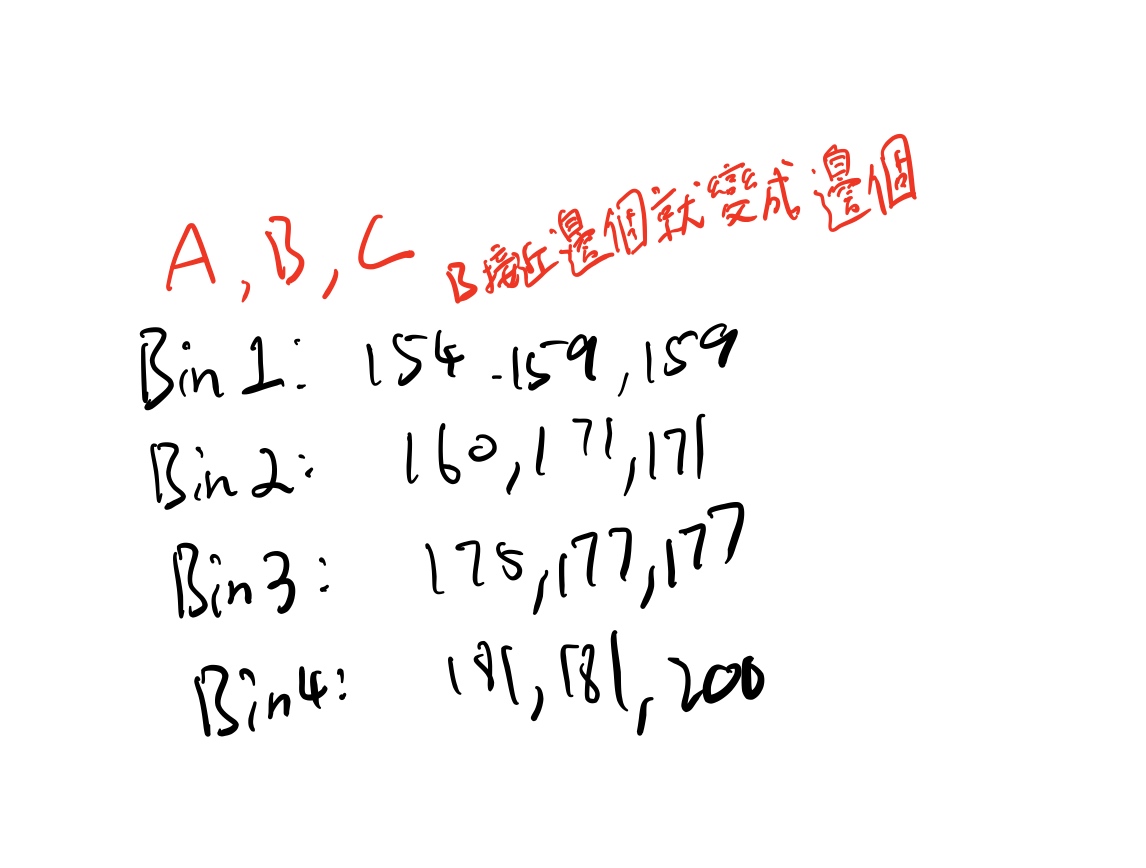 A, B, C B接近邊個就變成邊個
Bin 1: 154.159,159
Bin 2: 160,171,171
Bin 3: 175,177,177
Bin 4: 181,181,200